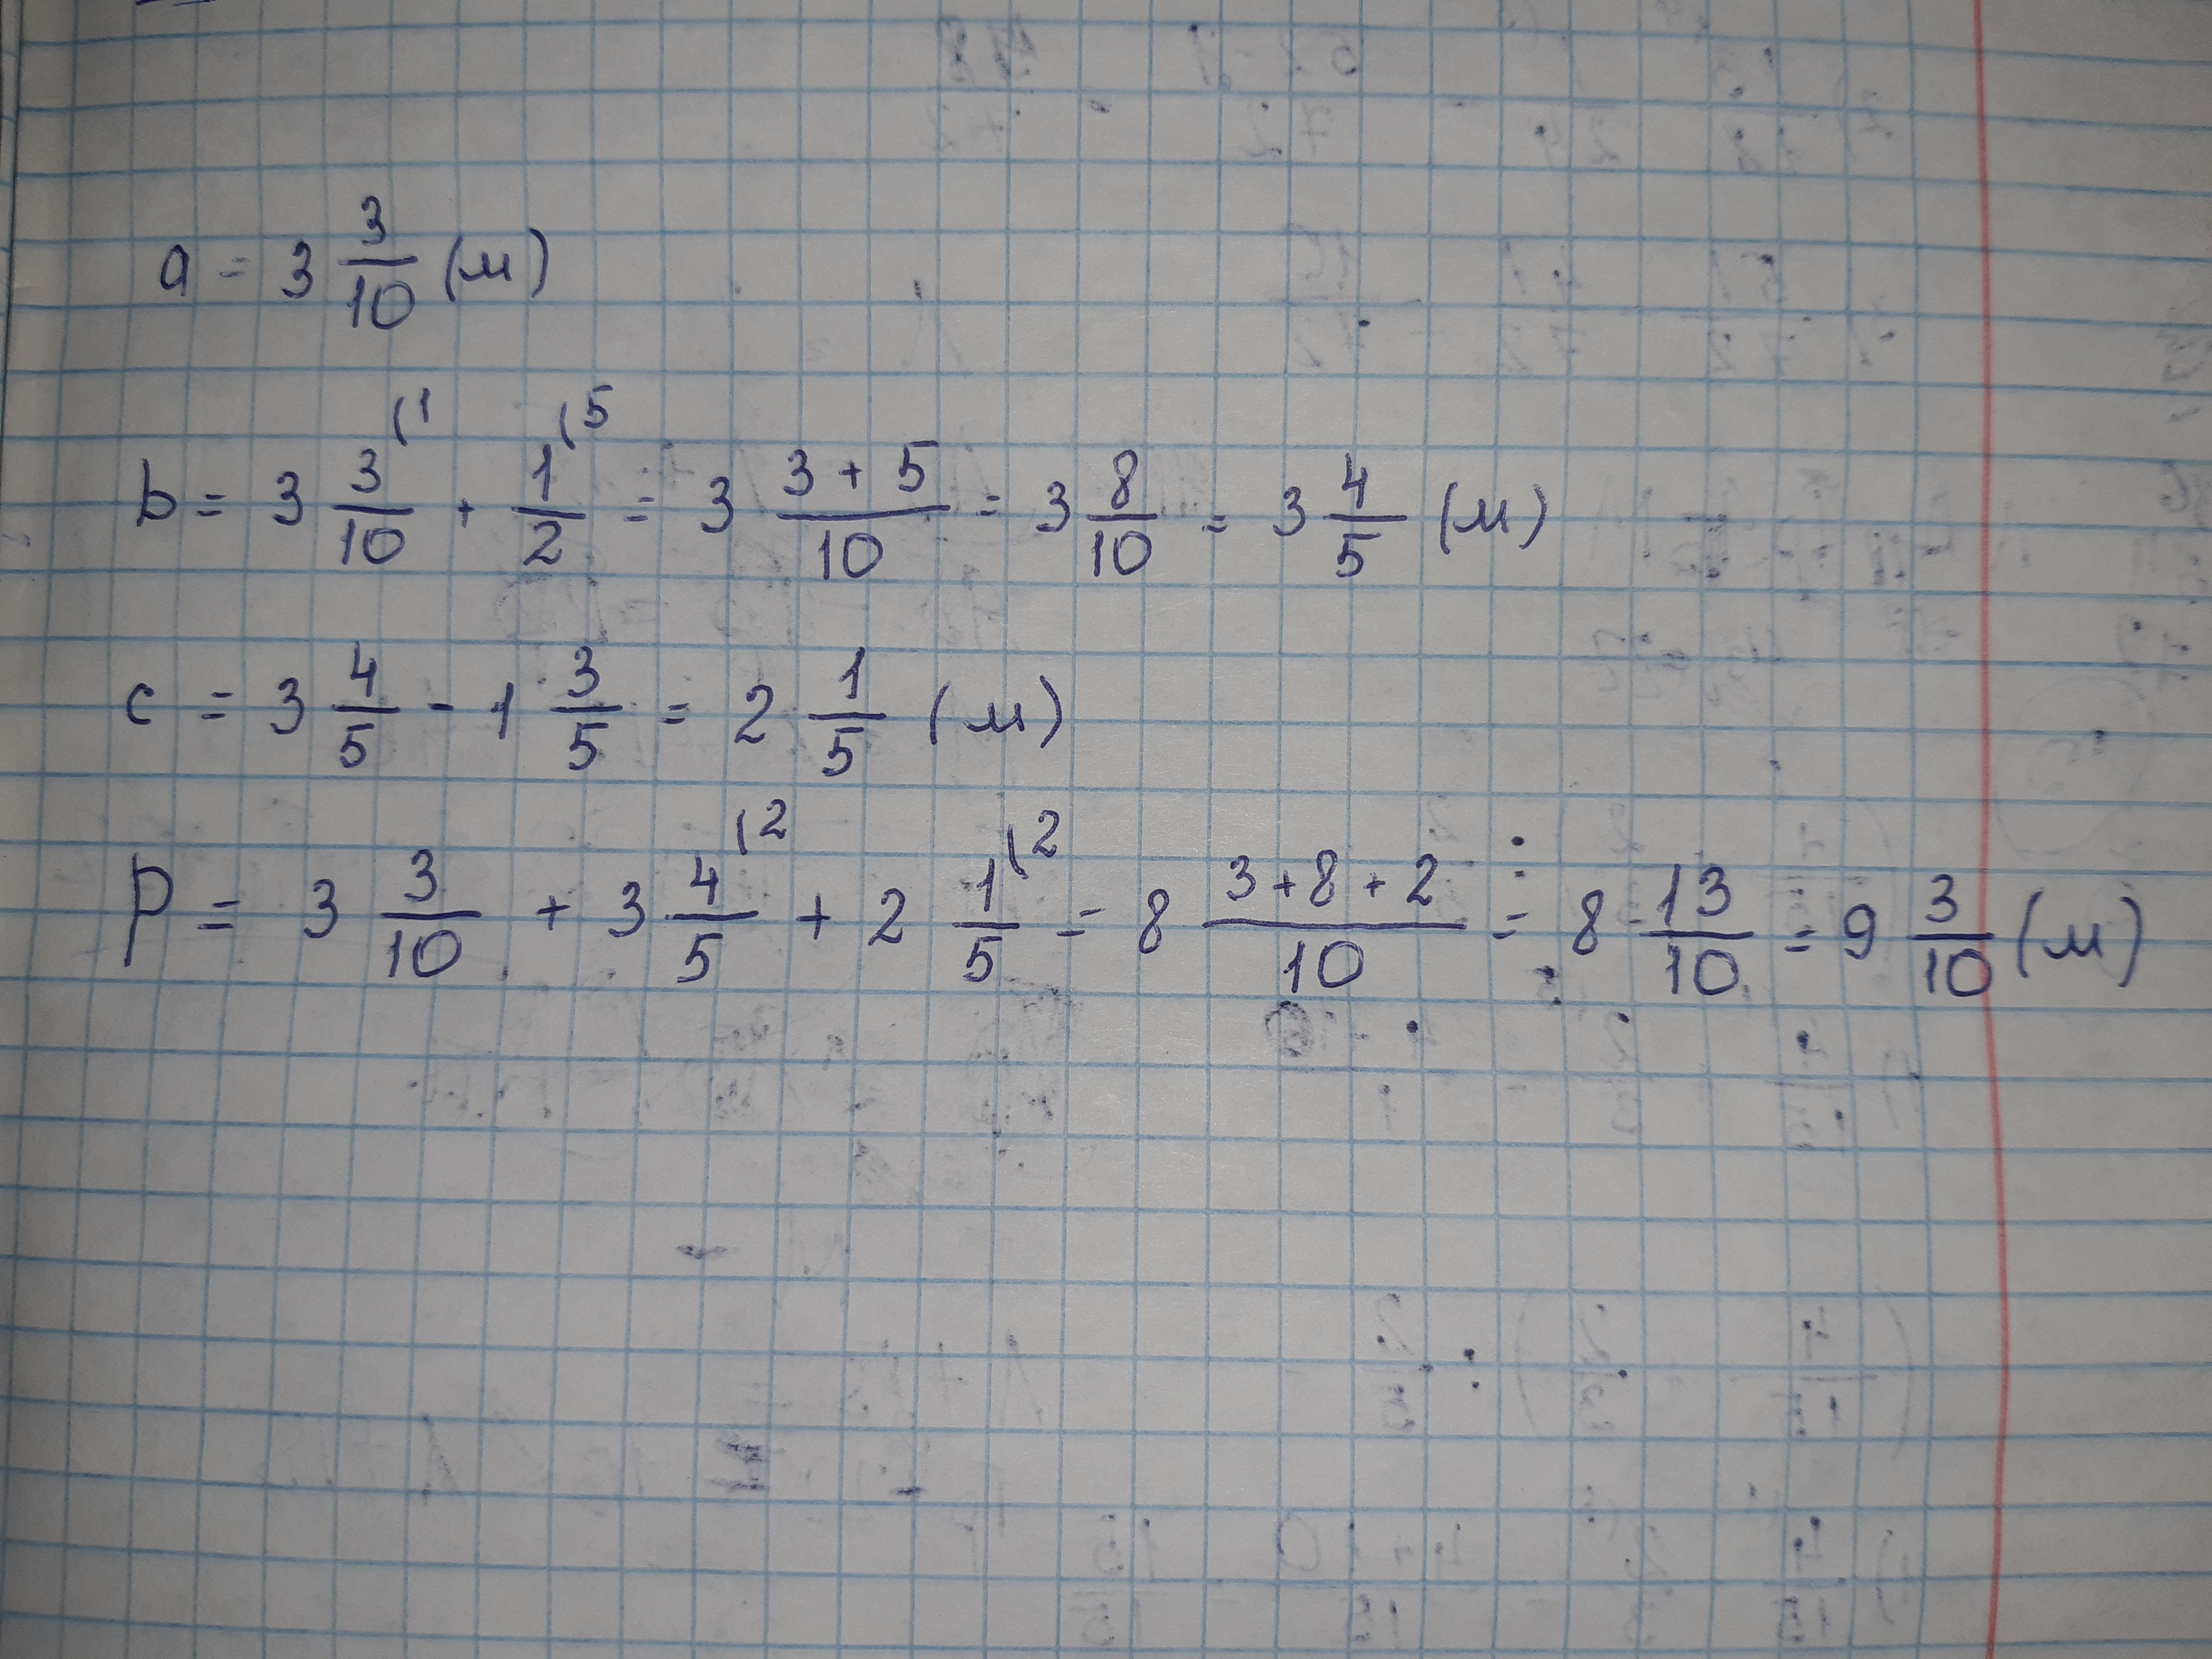 a = 3 3/10 (м)
b = 3 3/10 (1 + 1/2 (5 = 3 (3 + 5)/10 = 3 8/10 = 3 4/5 (м)
c = 3 4/5 - 1 3/5 = 2 1/5 (м)
P = 3 3/10 + 3 4/5 (2 + 2 1/5 (2 = 8 (3 + 8 + 2)/10 = 8 13/10 = 9 3/10 (м)